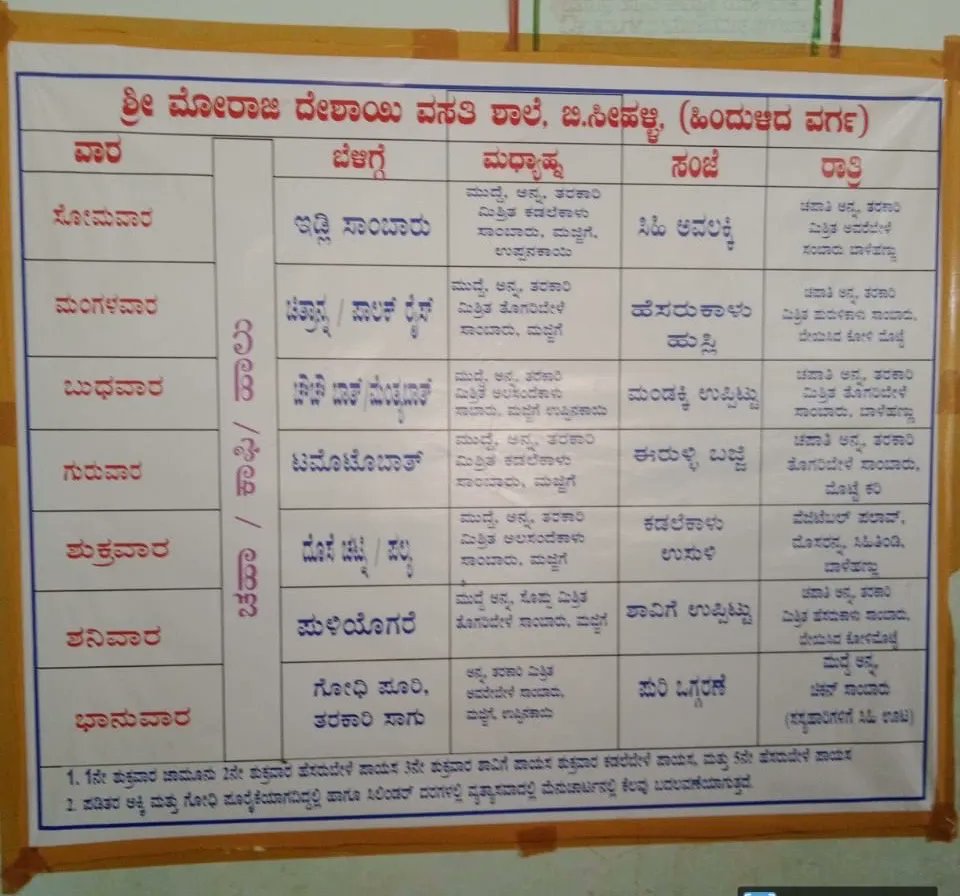 ಶ್ರೀ ಮೋರಾಜಿ ದೇಶಾಯಿ ವಸತಿ ಶಾಲೆ, ಬಿ.ಸೀಹಳ್ಳಿ, (ಹಿಂದುಳಿದ ವರ್ಗ)
ವಾರ ಬೆಳಿಗ್ಗೆ ಮಧ್ಯಾಹ್ನ ಸಂಜೆ ರಾತ್ರಿ
ಚಹಾ / ಕಾಫಿ / ಹಾಲು
ಸೋಮವಾರ
ಇಡ್ಲಿ ಸಾಂಬಾರು
ಮುದ್ದೆ, ಅನ್ನ, ತರಕಾರಿ
ಮಿಶ್ರಿತ ಕಡಲೆಕಾಳು
ಸಾಂಬಾರು, ಮಜ್ಜಿಗೆ,
ಉಪ್ಪನಕಾಯಿ
ಸಿಹಿ ಅವಲಕ್ಕಿ
ಚಪಾತಿ ಅನ್ನ, ತರಕಾರಿ
ಮಿಶ್ರಿತ ಅವರೆಬೇಳೆ
ಸಂಬಾರು ಬಾಳೆಹಣ್ಣು
ಮಂಗಳವಾರ
ಚಿತ್ರಾನ್ನ / ಪಾಲಕ್ ರೈಸ್
ಮುದ್ದೆ, ಅನ್ನ, ತರಕಾರಿ
ಮಿಶ್ರಿತ ತೊಗರಿಬೇಳೆ
ಸಾಂಬಾರು, ಮಜ್ಜಿಗೆ
ಹೆಸರುಕಾಳು
ಹುಸ್ಲಿ
ಚಪಾತಿ ಅನ್ನ, ತರಕಾರಿ
ಮಿಶ್ರಿತ ಹುರುಳಿಕಾಳು ಸಾಂಬಾರು,
ಬೇಯಿಸಿದ ಕೋಳಿ ಮೊಟ್ಟೆ
ಬುಧವಾರ
ಚೌಚೌ ಬಾತ್ /ಮೆಂತ್ಯಬಾತ್
ಮುದ್ದೆ, ಅನ್ನ, ತರಕಾರಿ
ಮಿಶ್ರಿತ ಅಲಸಂದೆಕಾಳು
ಸಾಬಾರು, ಮಜ್ಜಿಗೆ ಉಪ್ಪಿನಕಾಯಿ
ಮಂಡಕ್ಕಿ ಉಪ್ಪಿಟ್ಟು
ಚಪಾತಿ ಅನ್ನ, ತರಕಾರಿ
ಮಿಶ್ರಿತ ತೊಗರಿಬೇಳೆ
ಸಾಂಬಾರು, ಬಾಳೆಹಣ್ಣು
ಗುರುವಾರ
ಟಮೊಟೊಬಾತ್
ಮುದ್ದೆ, ಅನ್ನ, ತರಕಾರಿ
ಮಿಶ್ರಿತ ಕಡಲೆಕಾಳು
ಸಾಂಬಾರು, ಮಜ್ಜಿಗೆ
ಈರುಳ್ಳಿ ಬಜ್ಜಿ
ಚಪಾತಿ ಅನ್ನ, ತರಕಾರಿ
ತೊಗರಿಬೇಳೆ ಸಾಂಬಾರು,
ಮೊಟ್ಟೆ ಕರಿ
ಶುಕ್ರವಾರ
ದೋಸೆ ಚಟ್ನಿ / ಪಲ್ಯ
ಮುದ್ದೆ, ಅನ್ನ, ತರಕಾರಿ
ಮಿಶ್ರಿತ ಅಲಸಂದೆಕಾಳು
ಸಾಂಬಾರು, ಮಜ್ಜಿಗೆ
ಕಡಲೆಕಾಳು
ಉಸುಳಿ
ವೆಜಿಟೆಬಲ್ ಪಲಾವ್,
ಮೊಸರನ್ನ, ಸಿಹಿತಿಂಡಿ,
ಬಾಳೆಹಣ್ಣು
ಶನಿವಾರ
ಪುಳಿಯೊಗರೆ
ಮುದ್ದೆ ಅನ್ನ, ಸೊಪ್ಪು ಮಿಶ್ರಿತ
ತೊಗರಿಬೇಳೆ ಸಾಂಬಾರು, ಮಜ್ಜಿಗೆ
ಶಾವಿಗೆ ಉಪ್ಪಿಟ್ಟು
ಚಪಾತಿ ಅನ್ನ, ತರಕಾರಿ
ಮಿಶ್ರಿತ ಹೆಸರುಕಾಳು ಸಾಂಬಾರು,
ಬೇಯಿಸಿದ ಕೋಳಿಮೊಟ್ಟೆ
ಭಾನುವಾರ
ಗೋಧಿ ಪೂರಿ,
ತರಕಾರಿ ಸಾಗು
ಅನ್ನ, ತರಕಾರಿ ಮಿಶ್ರಿತ
ಅವರೇಬೇಳೆ ಸಾಂಬಾರು,
ಮಜ್ಜಿಗೆ, ಉಪ್ಪಿನಕಾಯಿ
ಪುರಿ ಒಗ್ಗರಣೆ
ಮುದ್ದೆ ಅನ್ನ,
ಚಿಕನ್ ಸಾಂಬಾರು
(ಸಸ್ಯಹಾರಿಗಳಿಗೆ ಸಿಹಿ ಊಟ)
1. 1ನೇ ಶುಕ್ರವಾರ ಜಾಮೂನು 2ನೇ ಶುಕ್ರವಾರ ಹೆಸರುಬೇಳೆ ಪಾಯಸ 3ನೇ ಶುಕ್ರವಾರ ಶಾವಿಗೆ ಪಾಯಸ ಶುಕ್ರವಾರ ಕಡಲೆಬೇಳೆ ಪಾಯಸ, ಮತ್ತು 5ನೇ ಹೆಸರುಬೇಳೆ ಪಾಯಸ
2. ಪಡಿತರ ಅಕ್ಕಿ ಮತ್ತು ಗೋಧಿ ಪೂರೈಕೆಯಾಗದಿದ್ದಲ್ಲಿ ಹಾಗೂ ಸಿಲಿಂಡರ್ ದರಗಳಲ್ಲಿ ವ್ಯತ್ಯಾಸವಾದಲ್ಲಿ ಮೆನುಚಾರ್ಟನಲ್ಲಿ ಕೆಲವು ಬದಲಾವಣೆಯಾಗುತ್ತದೆ.